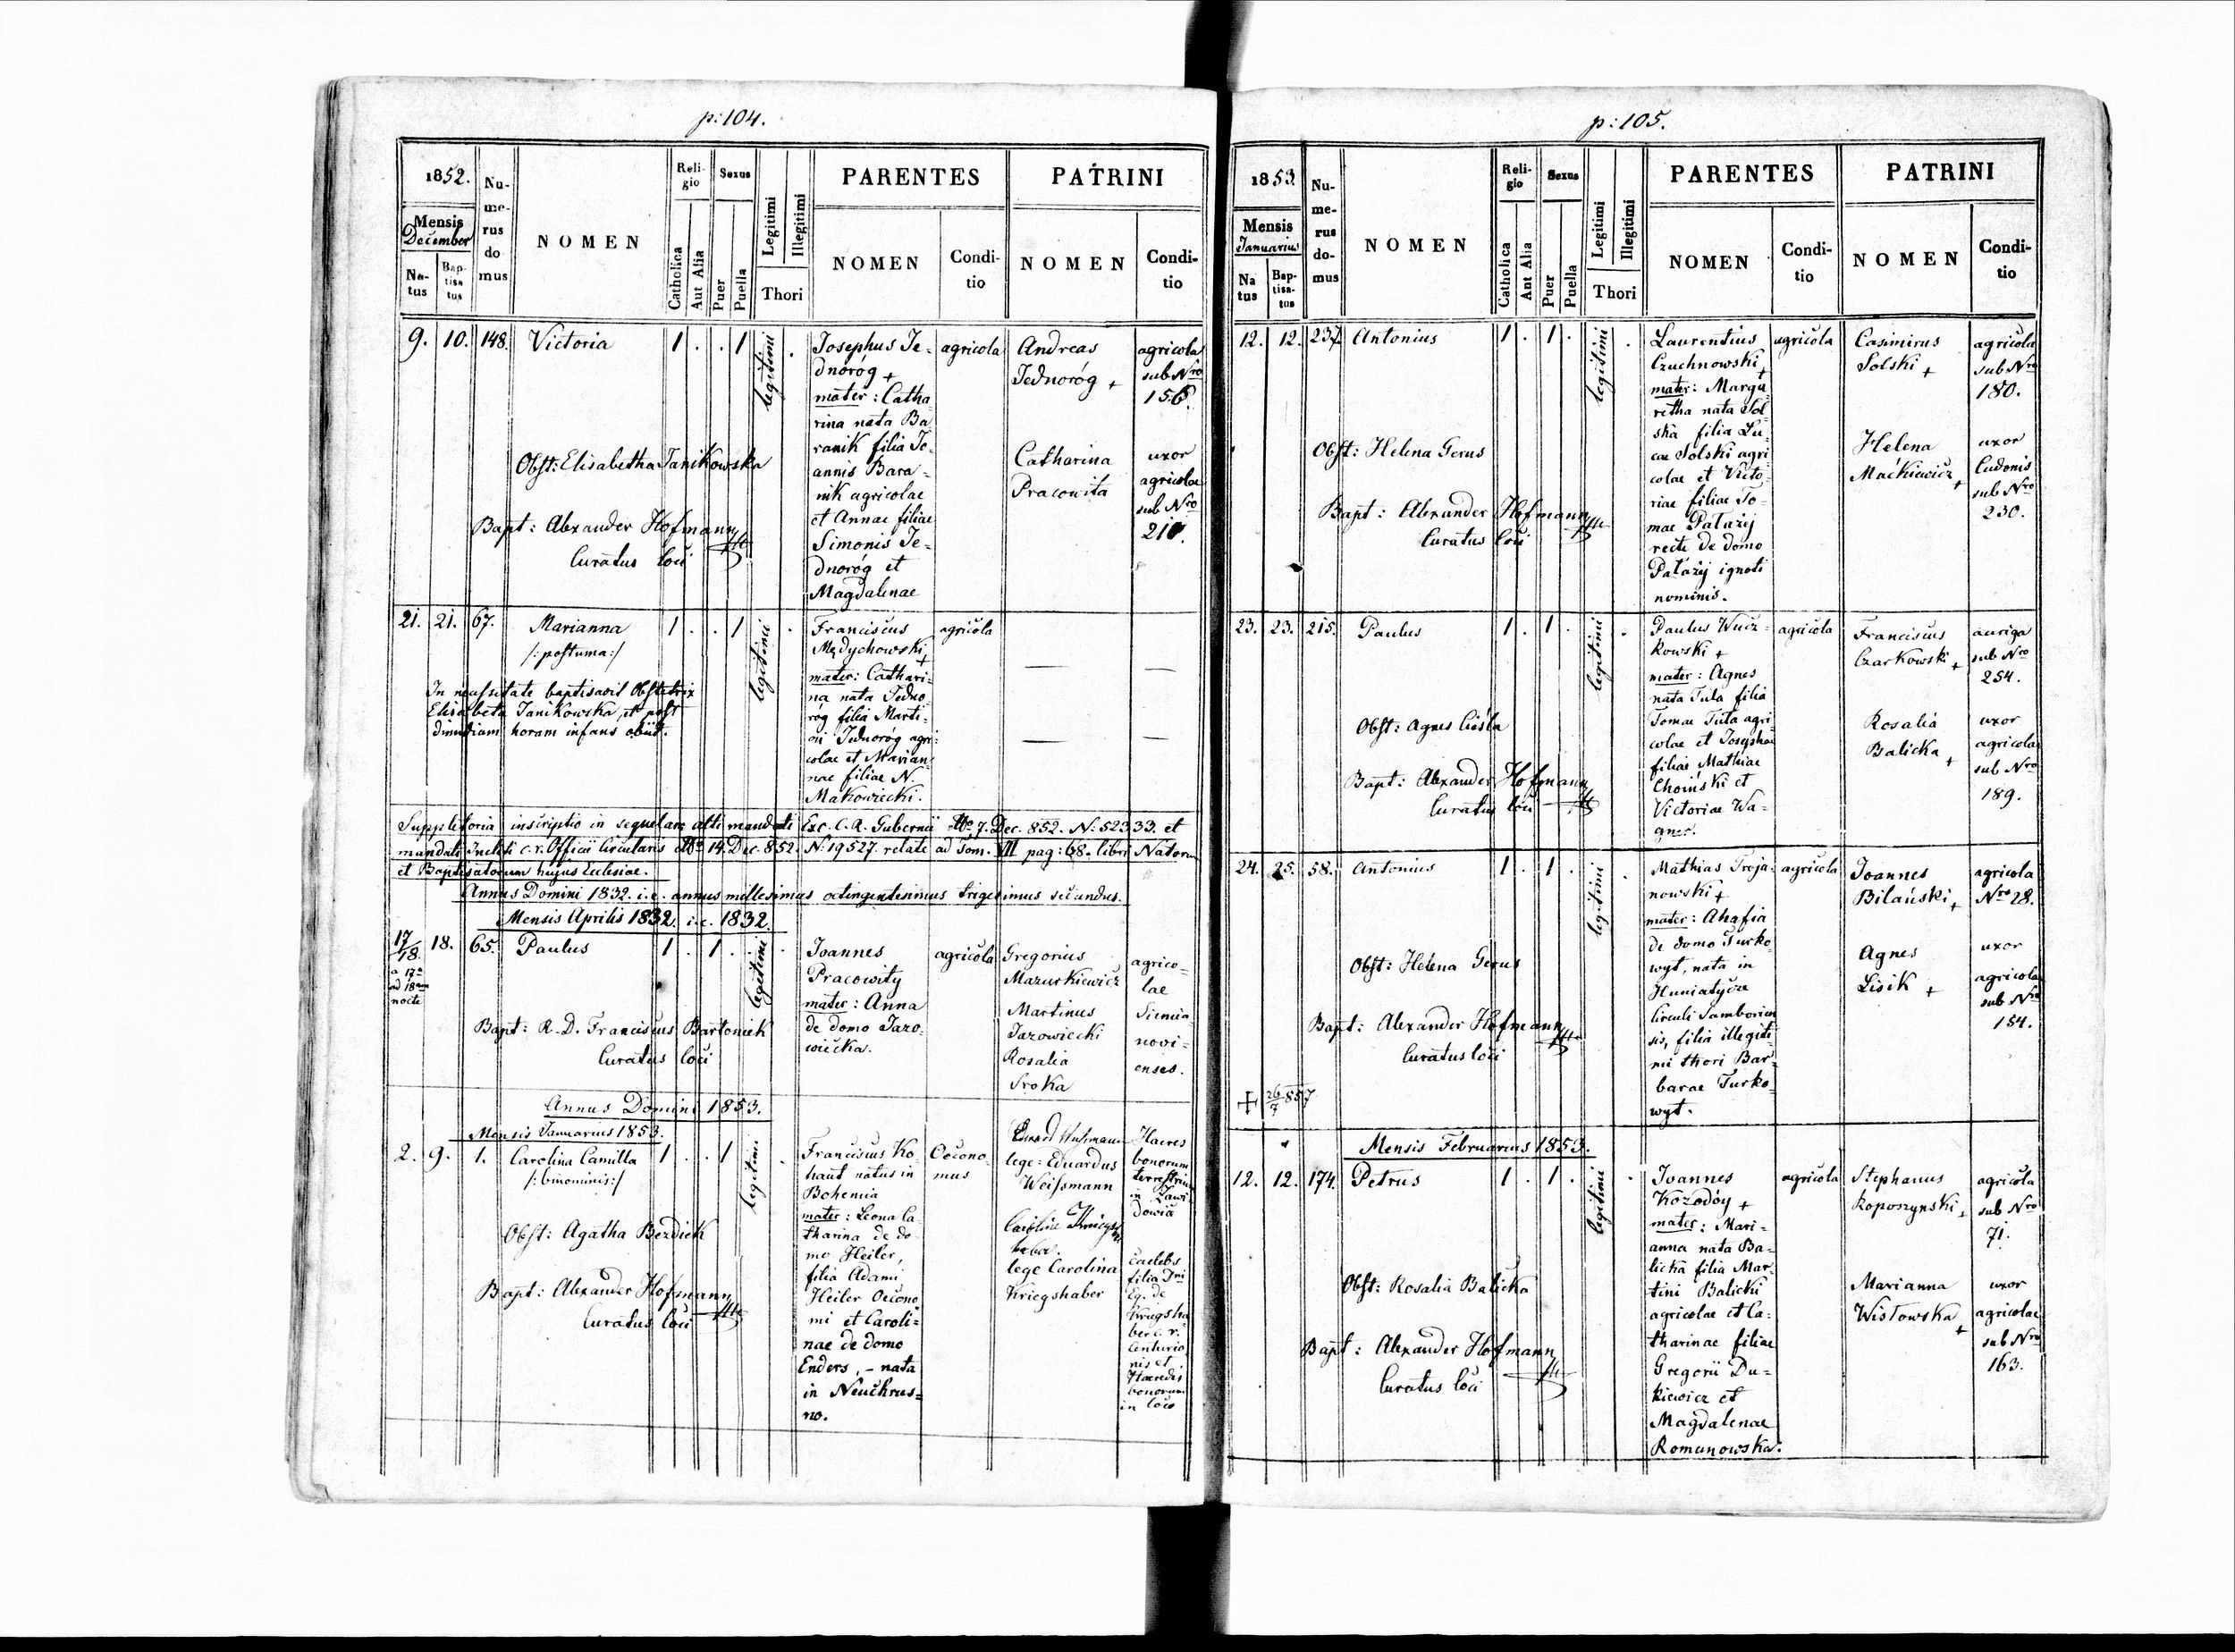 p: 104.
1852.
Mensis
December
Na-
tus
Bap-
tisa
tus
Nu-
me-
rus
do
mus
NOMEN
Reli-
gio
Catholica
Aut Alia
Sexus
Puer
Puella
Legitimi
Illegitimi
Thori
PARENTES
NOMEN
Condi-
tio
PATRINI
NOMEN
Condi-
tio
9. 10. 148. Victoria 1 . . 1 legitimi .
Obst: Elisabetha Janikowska
Bapt: Alexander Hofmann
Curatus loci
Josephus Je-
dnoróg +
mater: Catha-
rina nata Ba
ranik filia Jo-
annis Bara-
nik agricolae
et Annae filiae
Simonis Je-
dnoróg et
Magdalenae
agricola
Andreas
Jednoróg +
agricola
sub Nro
156.
Catharina
Pracowita
uxor
agricolae
sub Nro
210.
21. 21. 67. Marianna 1 . . 1 legitimi .
/: postuma :/
In necessitate baptisavit Obstetrix
Elisabeta Janikowska, et post
dimidiam horam infans obiit.
Franciscus
Mędychowski +
mater: Cathari-
na nata Jedno
róg filia Marti-
ni Jednoróg agri-
colae et Marian-
nae filiae N.
Makowiecki.
agricola
— —
— —
Suppletoria inscriptio in sequelam alti mandati Exc. C. R. Gubernii ddto 7. Dec. 852. N: 52333. et
mandati Incliti c. r. Officii Circularis ddto 14. Dec. 852. N: 19527. relate ad Tom. VII pag: 68. libri Natorum
et Baptisatorum hujus Ecclesiae.
Annus Domini 1832. i. e. annus millesimus octingentesimus trigesimus secundus.
Mensis Aprilis 1832. i. e. 1832.
17/18. 18. 65. Paulus 1 . 1 . legitimi .
a 17a
ad 18am
nocte
Bapt: R. D. Franciscus Bartoniek
Curatus loci
Joannes
Pracowity
mater: Anna
de domo Jazo-
wiecka.
agricola
Gregorius
Mazurkiewicz
Martinus
Jazowiecki
Rosalia
Sroka
agrico-
lae
Siemia
novi-
enses.
Annus Domini 1853.
Mensis Januarius 1853.
2. 9. 1. Carolina Camilla 1 . . 1 legitimi .
/: binominis :/
Obst: Agatha Berdick
Bapt: Alexander Hofmann
Curatus loci
Franciscus Ko-
haut natus in
Bohemia
mater: Leona Ca-
tharina de do-
mo Heiler,
filia Adami
Heiler Oecono
mi et Caroli-
nae de domo
Enders, - nata
in Neuchrus-
no.
Oecono-
mus
lege: Eduardus
Weissmann
Haeres
bonorum
terrestrium
in Zawi
dowia
Caroline
lege Carolina
Kriegshaber
caelebs
filia Dni
Eq. de
Kriegsha
ber c. r.
Centurio
nis et
Haeredis
bonorum
in loco
p: 105.
1853.
Mensis
Januarius
Na
tus
Bap-
tisa-
tus
Nu-
me-
rus
do-
mus
NOMEN
Reli-
gio
Catholica
Aut Alia
Sexus
Puer
Puella
Legitimi
Illegitimi
Thori
PARENTES
NOMEN
Condi-
tio
PATRINI
NOMEN
Condi-
tio
12. 12. 237. Antonius 1 . 1 . legitimi .
Obst: Helena Gerus
Bapt: Alexander Hofmann
Curatus loci
Laurentius
Czuchnowski +
mater: Marga
retha nata Sol-
ska filia Lu-
cae Solski agri
colae et Victo-
riae filiae To-
mae Patazij
recte de domo
Patazij ignoti
nominis.
agricola
Casimirus
Solski +
agricola
sub Nro
180.
Helena
Maćkiewicz +
uxor
ludonis
sub Nro
230.
23. 23. 215. Paulus 1 . 1 . legitimi .
Obst: Agnes Cieśla
Bapt: Alexander Hofmann
Curatus loci
Paulus Wucz-
kowski +
mater: Agnes
nata Tuła filia
Tomae Tuła agri
colae et Josephae
filiae Mathiae
Choiński et
Victoriae Wa-
gner.
agricola
Franciscus
Czarkowski +
auriga
sub Nro
254.
Rosalia
Balicka +
uxor
agricolae
sub Nro
189.
24. 25. 58. Antonius 1 . 1 . legitimi .
Obst: Helena Gerus
Bapt: Alexander Hofmann
Curatus loci
+ 26/7 857
Mathias Troja-
nowski +
mater: Ahafia
de domo Turko-
wyt, nata in
Huniatycze
Circuli Samborien
sis, filia illegiti-
mi thori Bar-
barae Turko-
wyt.
agricola
Joannes
Bilański +
agricola
Nro 28.
Agnes
Lisik +
uxor
agricolae
sub Nro
154.
Mensis Februarius 1853.
12. 12. 174. Petrus 1 . 1 . legitimi .
Obst: Rosalia Balicka
Bapt: Alexander Hofmann
Curatus loci
Joannes
Kozodóy +
mater: Mari-
anna nata Ba-
licka filia Mar-
tini Balicki
agricolae et Ca-
tharinae filiae
Gregorii Du-
kiewicz et
Magdalenae
Romanowska.
agricola
Stephanus
Koposzynski +
agricola
sub Nro
71.
Marianna
Wisłowska +
uxor
agricolae
sub Nro
163.